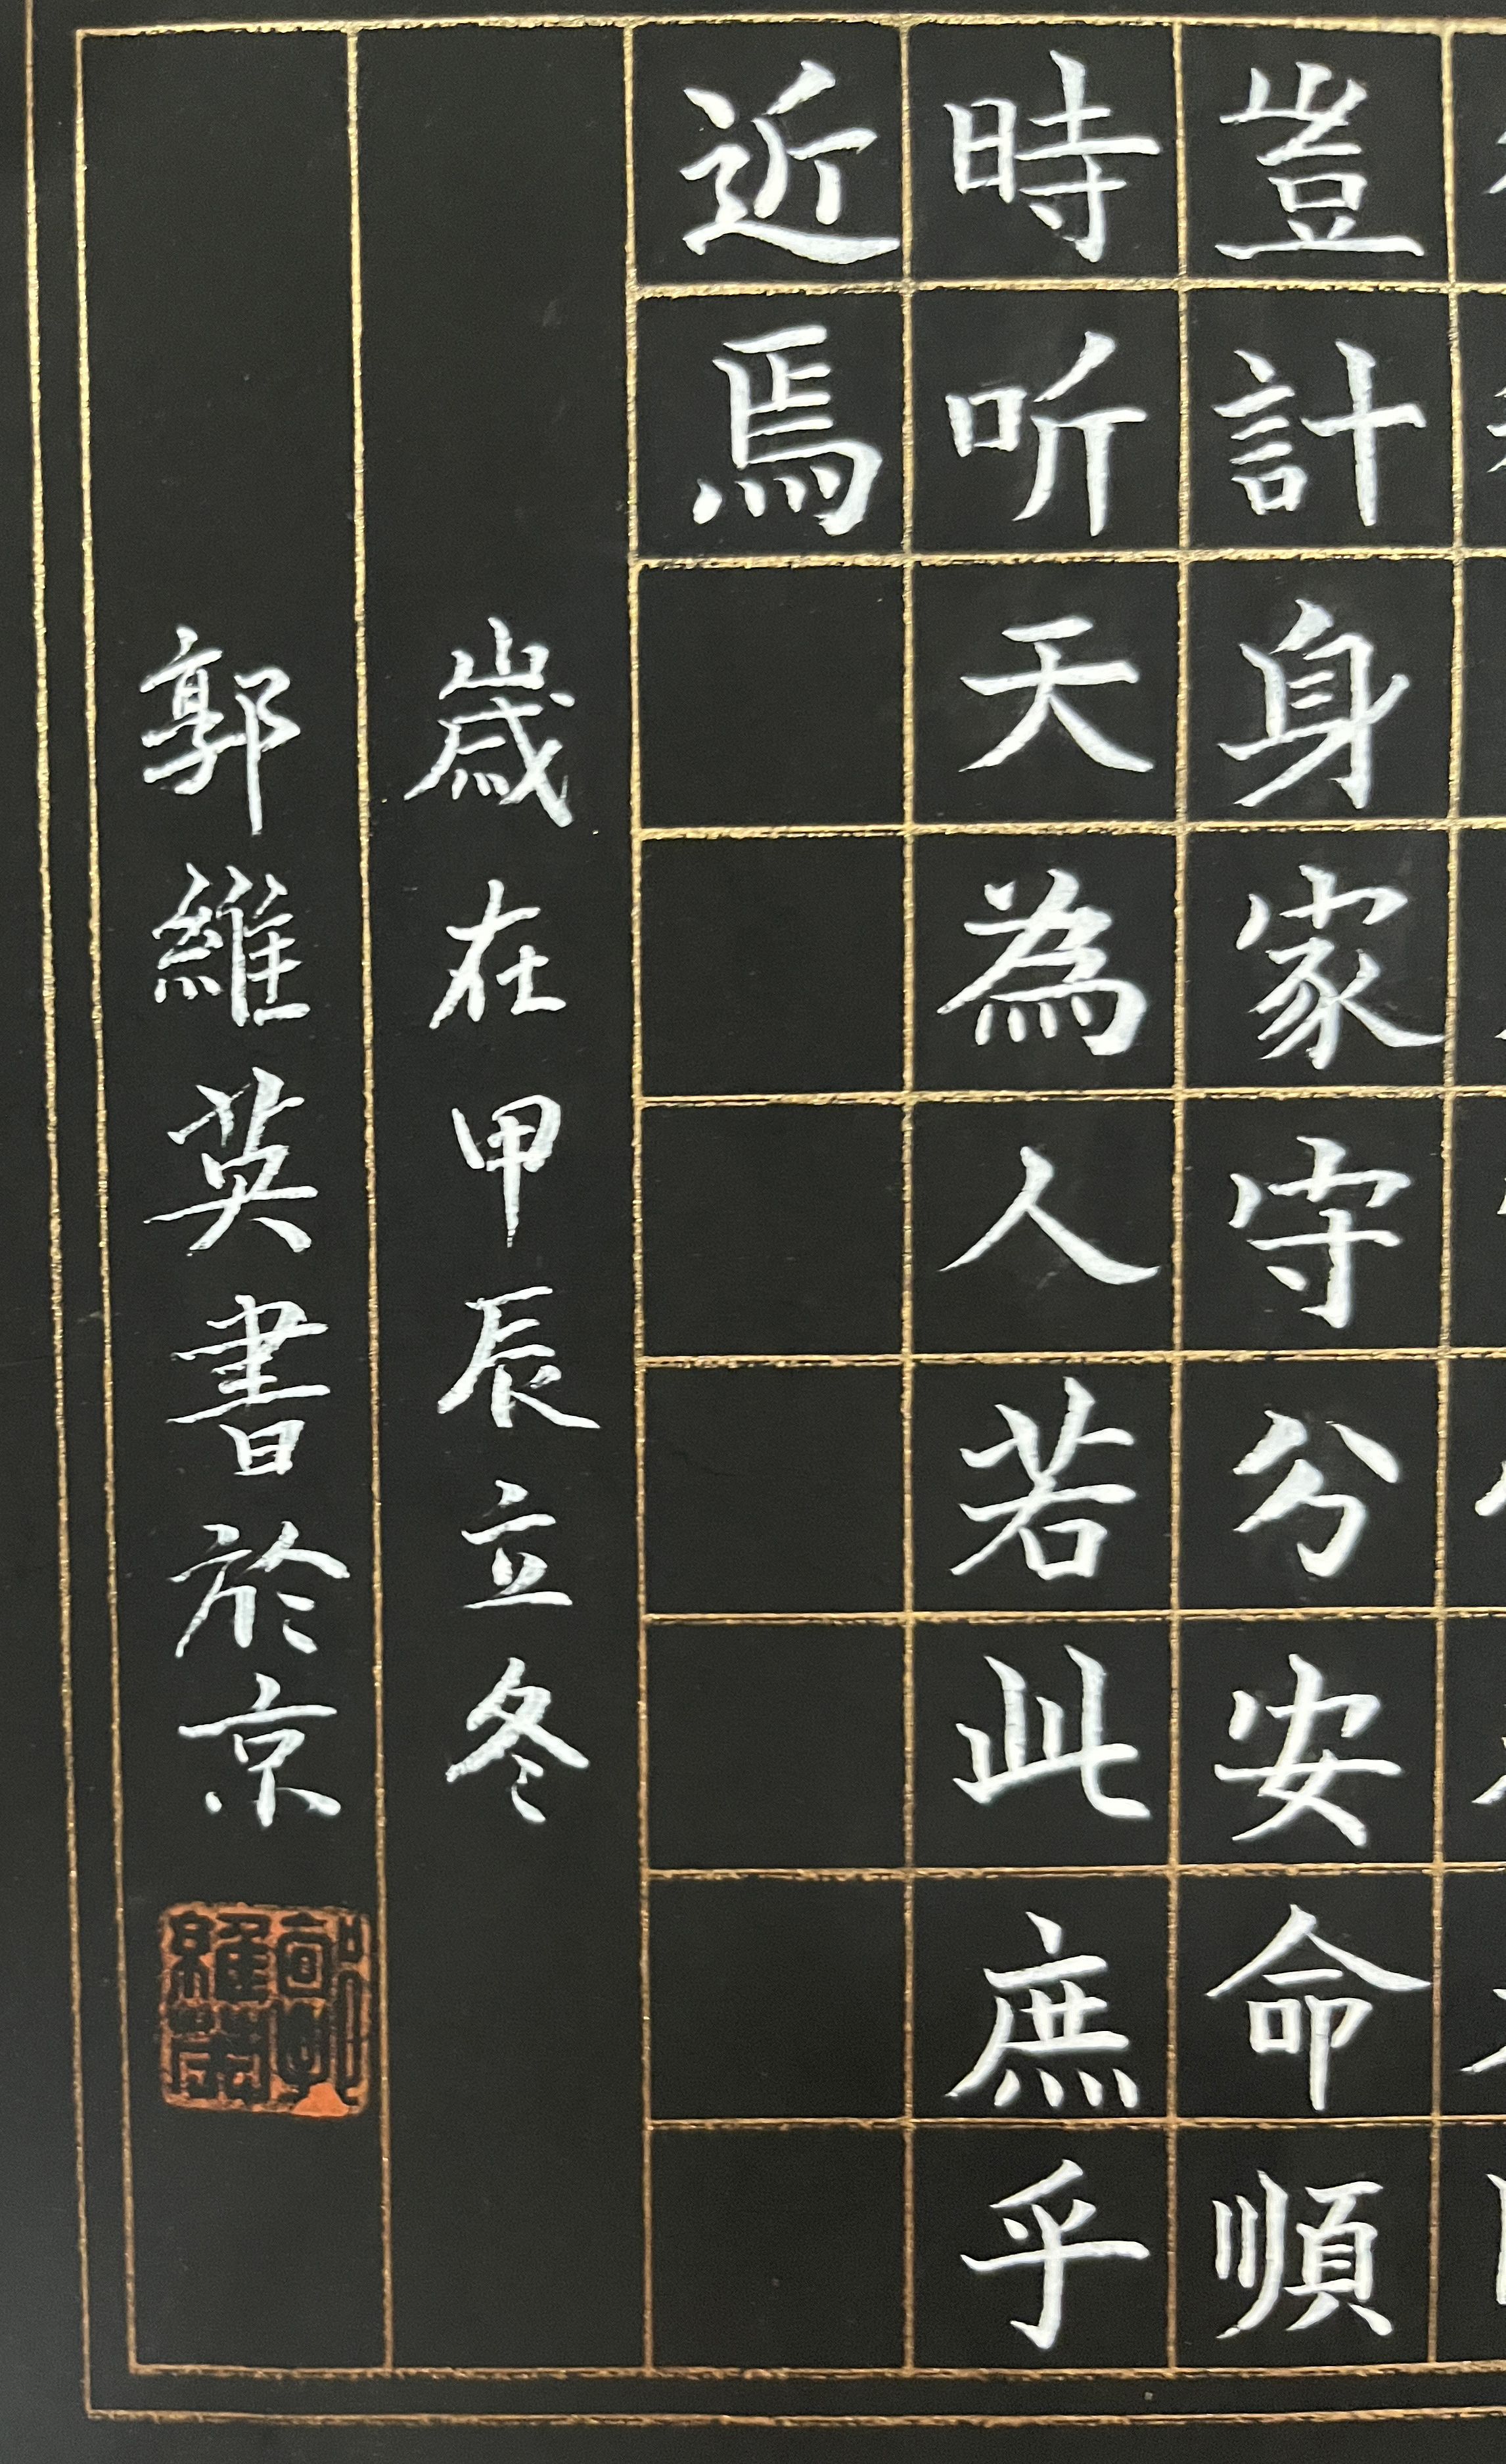 豈計身家守分安命順
時听天為人若此庶乎
近焉
嵗在甲辰立冬
郭維英書於京
郭維英